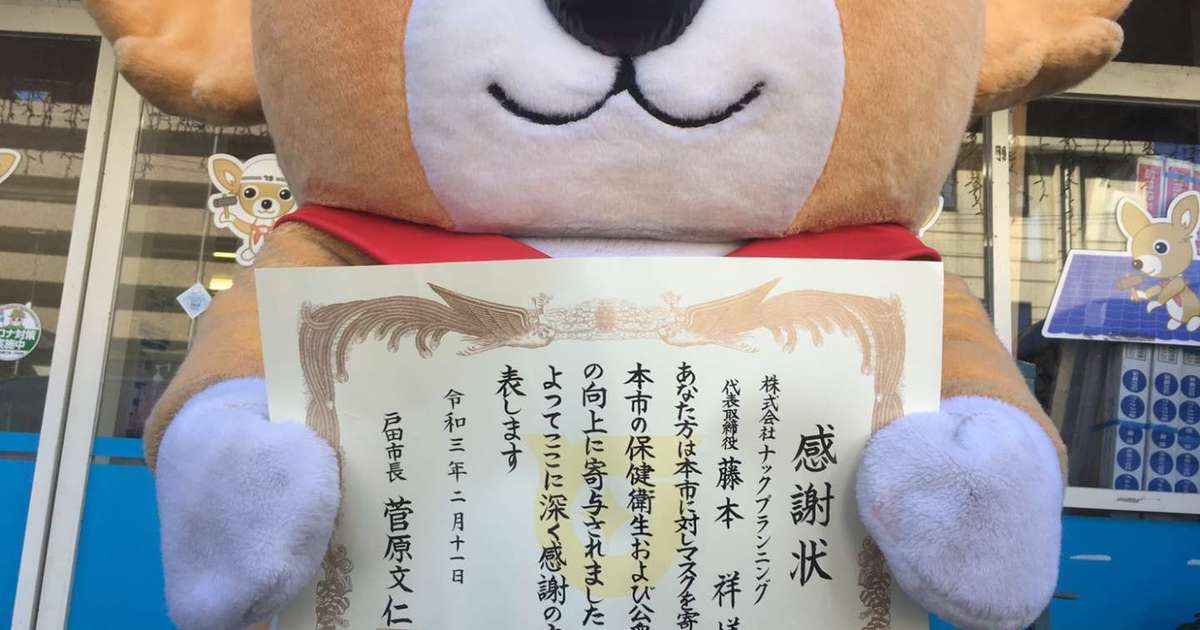 感謝状
株式会社ナックプランニング
代表取締役 藤本 祥 様
あなた方は本市に対しマスクを寄
本市の保健衛生および公衆
の向上に寄与されました
よってここに深く感謝の
表します
令和三年二月十一日
戸田市長 菅原文仁
コロナ対策
実施中